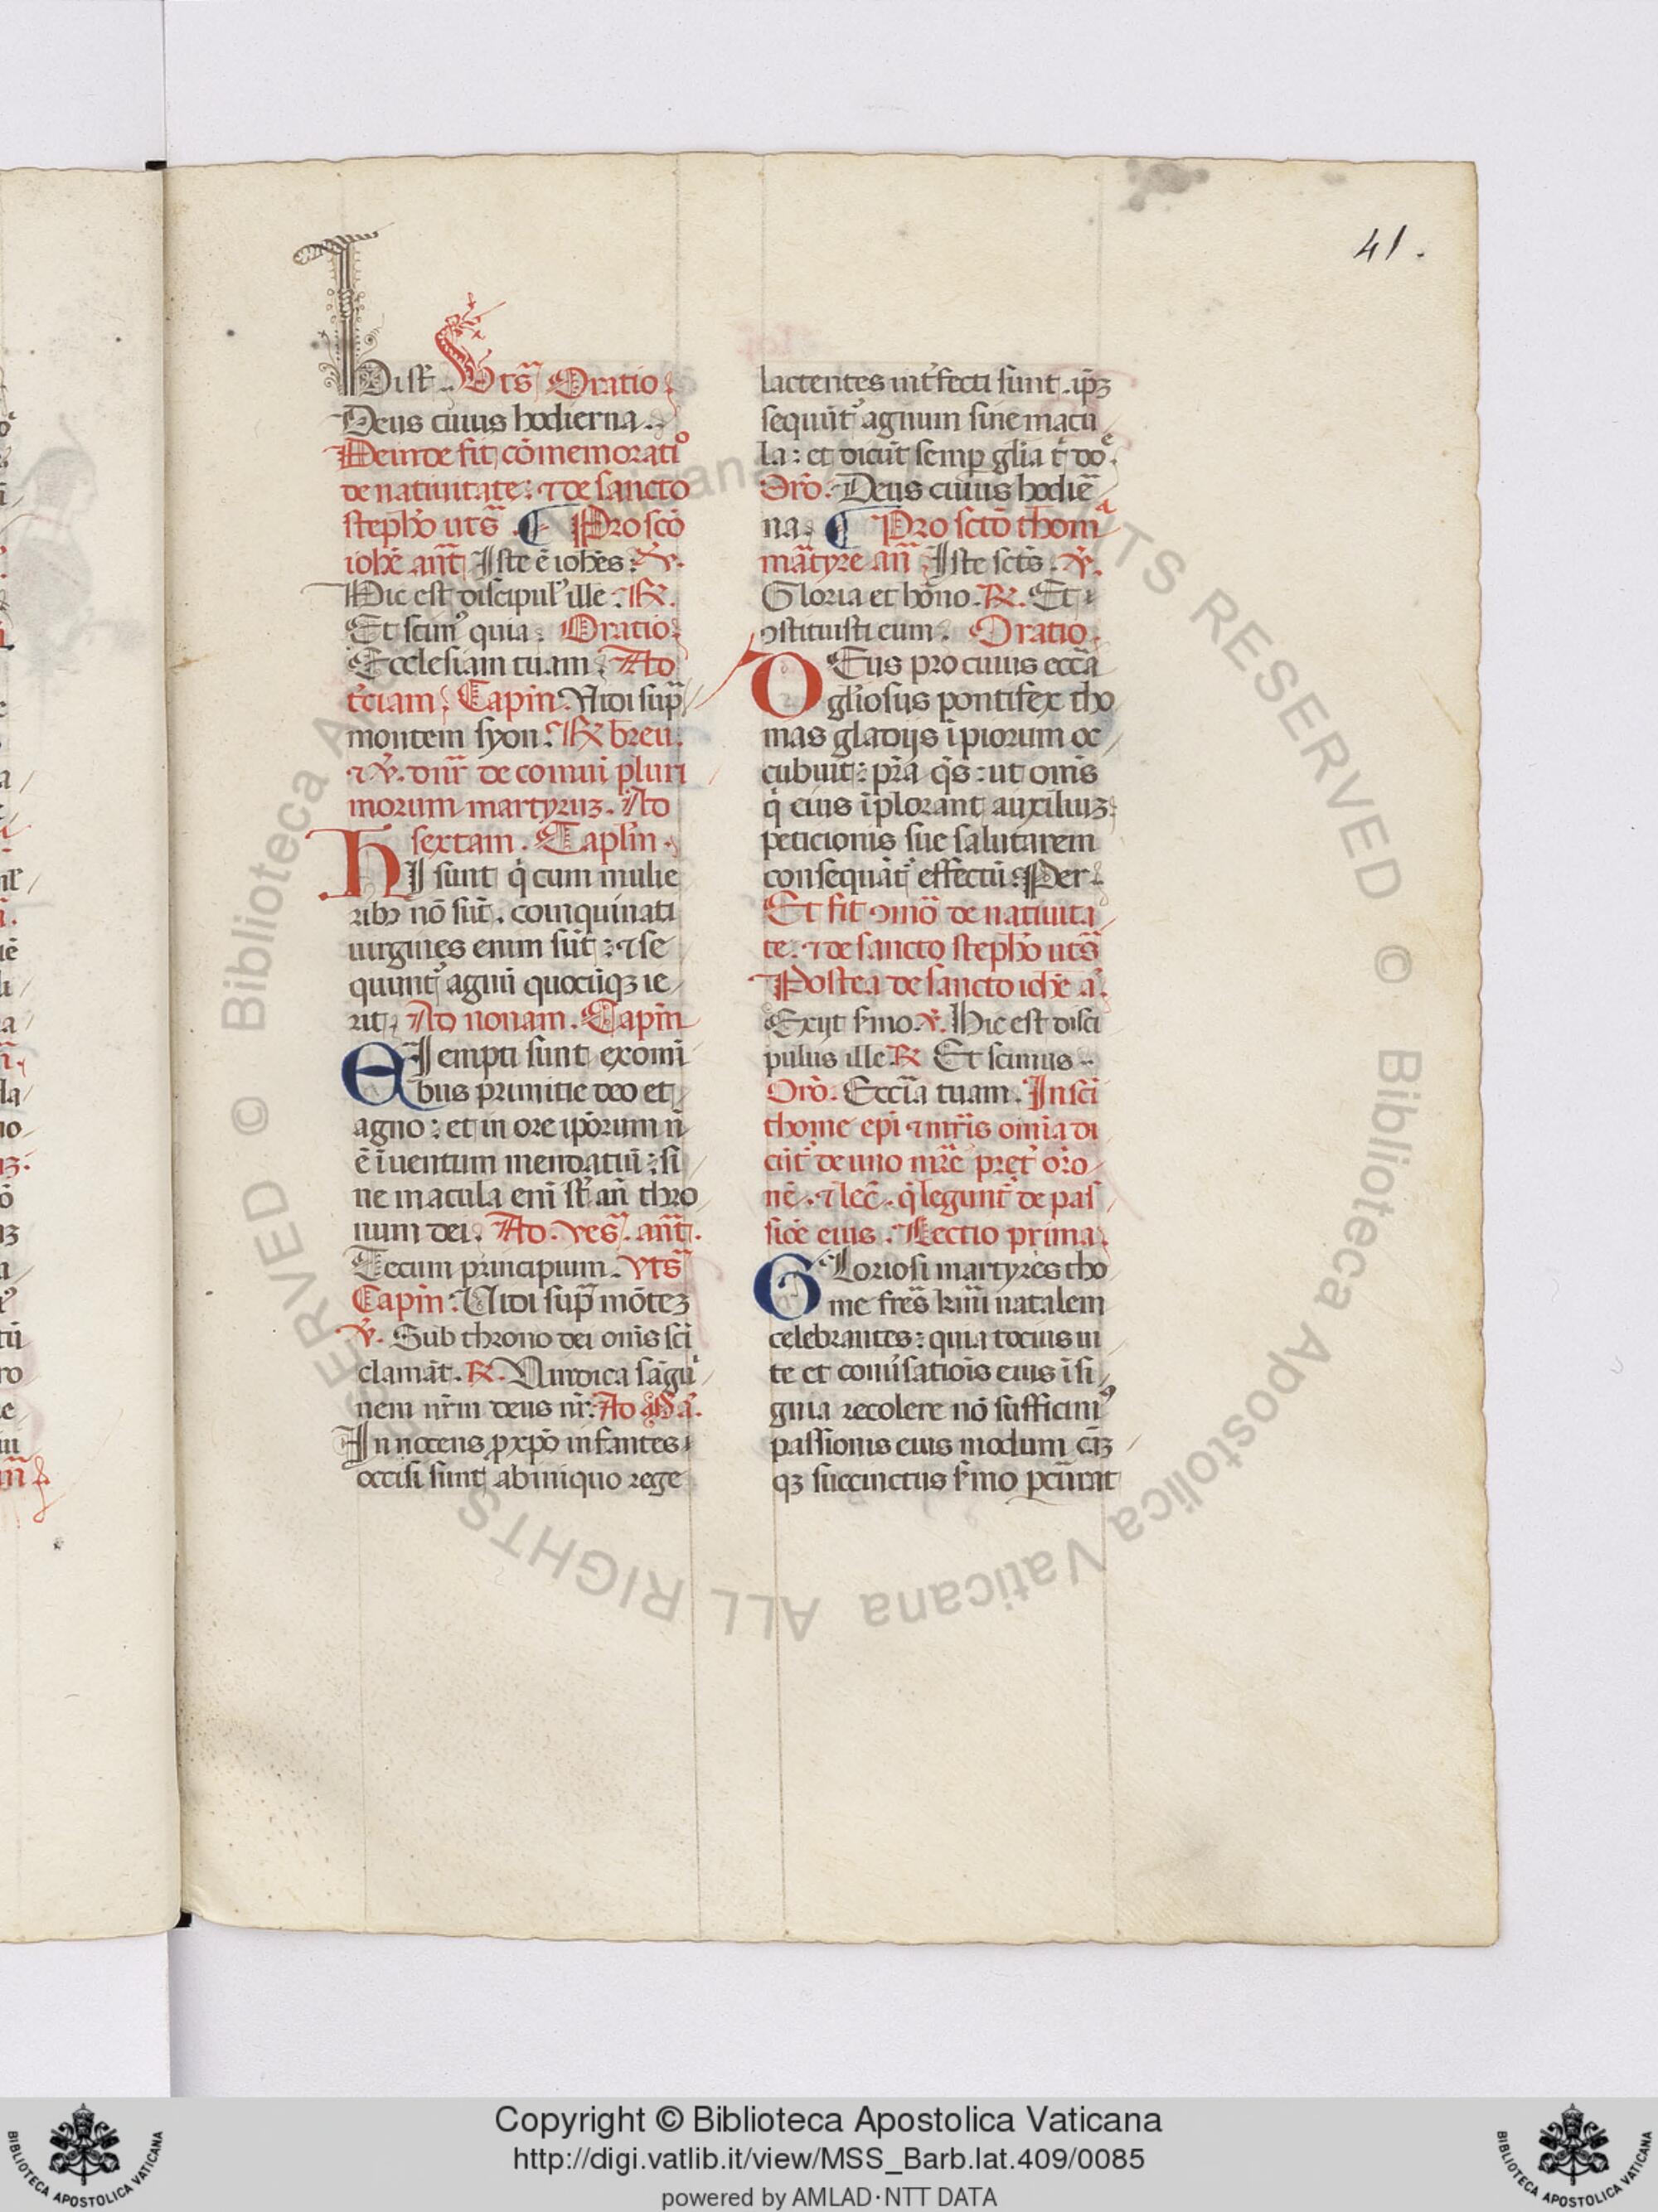 41.
Dist̄. Vts̄ Oratio
Deus cuius hodierna.
Deinde fit cōmemoratio
de natiuitate: ⁊ de sancto
stepħo uts̄. ¶ Pro scō
iohē an̄t Iste ē iohēs: ℣.
Hic est discipul' ille. ℟.
Et scim' quia. Oratio.
Ecclesiam tuam. Ad
t'ciam. Capłm. Uidi sup̄
montem syon. ℟ breu.
⁊ ℣. dn̄r de comui pluri
morum martyruꝫ. Ad
sextam. Caplm̄.
HI sunt q' cum mulie
ribꝫ nō sūt. coinquinati
uirgines enim sūt: ⁊ se
quunt' agnū quocūqꝫ ie
rit. Ad nonam. Capłm
EJ empti sunt ex omī
bus primitie deo et
agno: et in ore ipōrum n̄
ē īuentum mendatiū: si
ne macula enī st̄ an̄ thro
num dei. Ad. ves̄. an̄t.
Tecum principum. vts̄
Capłm. Uidi sup̄ mōteꝫ
℣. Sub throno dei om̄s sc̄i
clamāt. ℟. Uindica sāgui
nem nr̄m deus nr̄. Ad M̄ a.
Innocens ꝑ xp̄o infantes
occisi sunt ab iniquo rege
lactentes int'fecti sunt. ip̄ꝫ
sequūt' agnum sine macu
la: et dicūt semꝑ glīa t' doe.
Orō. Deus cuius hodie
na. ¶ Pro sctō thoma
mātyre an̄ Iste sctō̄s. ℣.
Gloria et hōno. ℟. Et
ꝯstituisti eum. Oratio.
DEus pro cuius ecc̄a
gl̄iosus pontifex tho
mas gladijs īpiorum oc
cubuit: pr̄a q̄s: ut om̄s
q' eius īplorant auxiliuꝫ
peticionis sue salutarem
consequāt' effectū: Per.
Et fit ꝯmō̄ de natiuita
te. ⁊ de sancto stepħo uts̄
Postea de sancto iohē a'.
Exijt s'mo. ℣. Hic est disci
pulus ille ℟ Et scimus
Orō. Ecc̄ia tuam. In sc̄i
thome ep̄i ⁊ mr̄is omīa di
cūt' de uno mr̄e p̄ret' orō
nē. ⁊ lec̄. q̄ legunt' de pas
siōe eius. Lectio prima.
GLoriosi martyres tho
me fres̄ krm̄i natalem
celebrantes: quia tocius ui
te et conu'sationis eius īsi
gnia recolere nō sufficim'
passionis eius modum cāꝫ
qꝫ succinctus s'mo ꝑcūrat
Copyright © Biblioteca Apostolica Vaticana
http://digi.vatlib.it/view/MSS_Barb.lat.409/0085
powered by AMLAD·NTT DATA